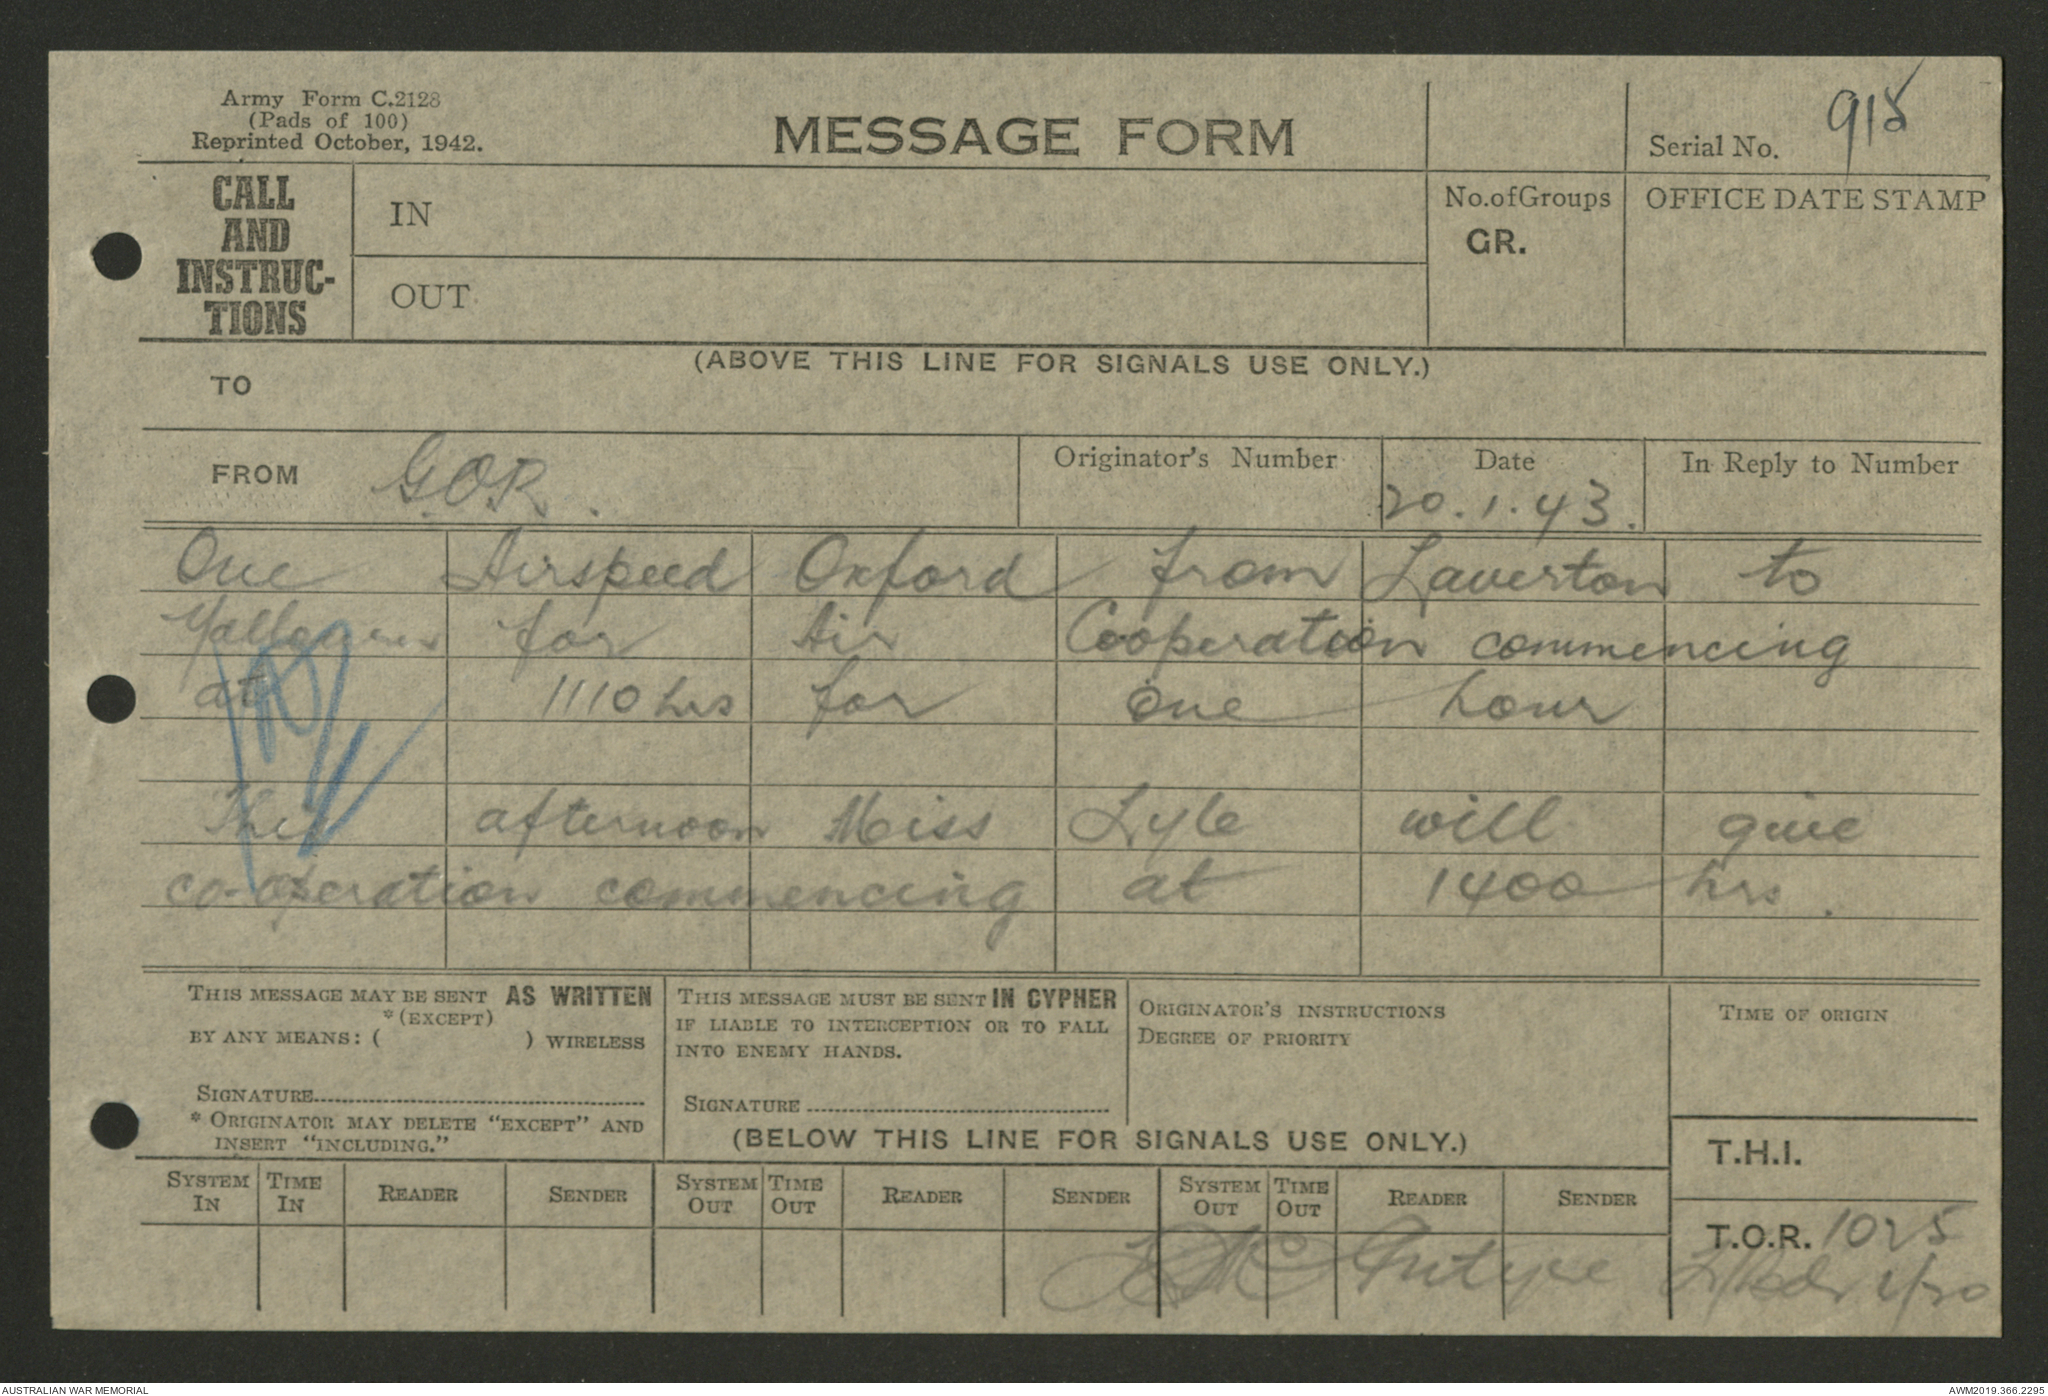 Army Form C.2128
(Pads of 100)
Reprinted October, 1942.
MESSAGE FORM
Serial No. 918
CALL
AND
INSTRUC-
TIONS
IN
OUT
No.ofGroups
GR.
OFFICE DATE STAMP
(ABOVE THIS LINE FOR SIGNALS USE ONLY.)
TO
FROM G.O.R.
Originator's Number
Date
20.1.43.
In Reply to Number
One Airspeed Oxford from Laverton to
for Air Cooperation commencing
at 1110 hrs for one hour
This afternoon Miss Lyle will give
co-operation commencing at 1400 hrs.
THIS MESSAGE MAY BE SENT AS WRITTEN
*(EXCEPT)
BY ANY MEANS: ( ) WIRELESS
SIGNATURE
* ORIGINATOR MAY DELETE "EXCEPT" AND
INSERT "INCLUDING."
THIS MESSAGE MUST BE SENT IN CYPHER
IF LIABLE TO INTERCEPTION OR TO FALL
INTO ENEMY HANDS.
SIGNATURE
ORIGINATOR'S INSTRUCTIONS
DEGREE OF PRIORITY
TIME OF ORIGIN
(BELOW THIS LINE FOR SIGNALS USE ONLY.)
T.H.I.
SYSTEM IN TIME IN READER SENDER SYSTEM OUT TIME OUT READER SENDER SYSTEM OUT TIME OUT READER SENDER
T.O.R. 1025
McIntyre
AUSTRALIAN WAR MEMORIAL
AWM2019.366.2295